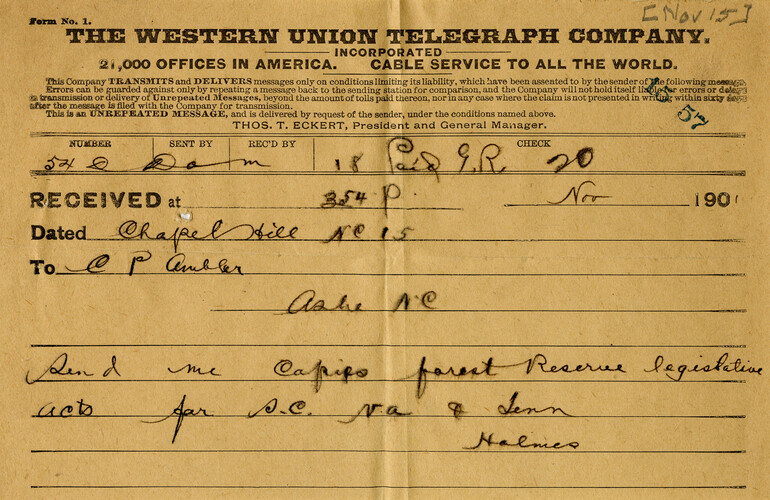 [Nov 15]
Form No. 1.
THE WESTERN UNION TELEGRAPH COMPANY.
INCORPORATED
21,000 OFFICES IN AMERICA. CABLE SERVICE TO ALL THE WORLD.
This Company TRANSMITS and DELIVERS messages only on conditions limiting its liability, which have been assented to by the sender of the following message.
Errors can be guarded against only by repeating a message back to the sending station for comparison, and the Company will not hold itself liable for errors or delays
in transmission or delivery of Unrepeated Messages, beyond the amount of tolls paid thereon, nor in any case where the claim is not presented in writing within sixty days
after the message is filed with the Company for transmission.
This is an UNREPEATED MESSAGE, and is delivered by request of the sender, under the conditions named above.
THOS. T. ECKERT, President and General Manager.
57
NUMBER SENT BY REC'D BY CHECK
54 18 Paid G.R. 20
RECEIVED at 354 P Nov 1901
Dated Chapel Hill NC 15
To C P Ambler
Ashe NC
Send me Copies forest Reserve legislative
acts for S.C. Va & Tenn
Holmes